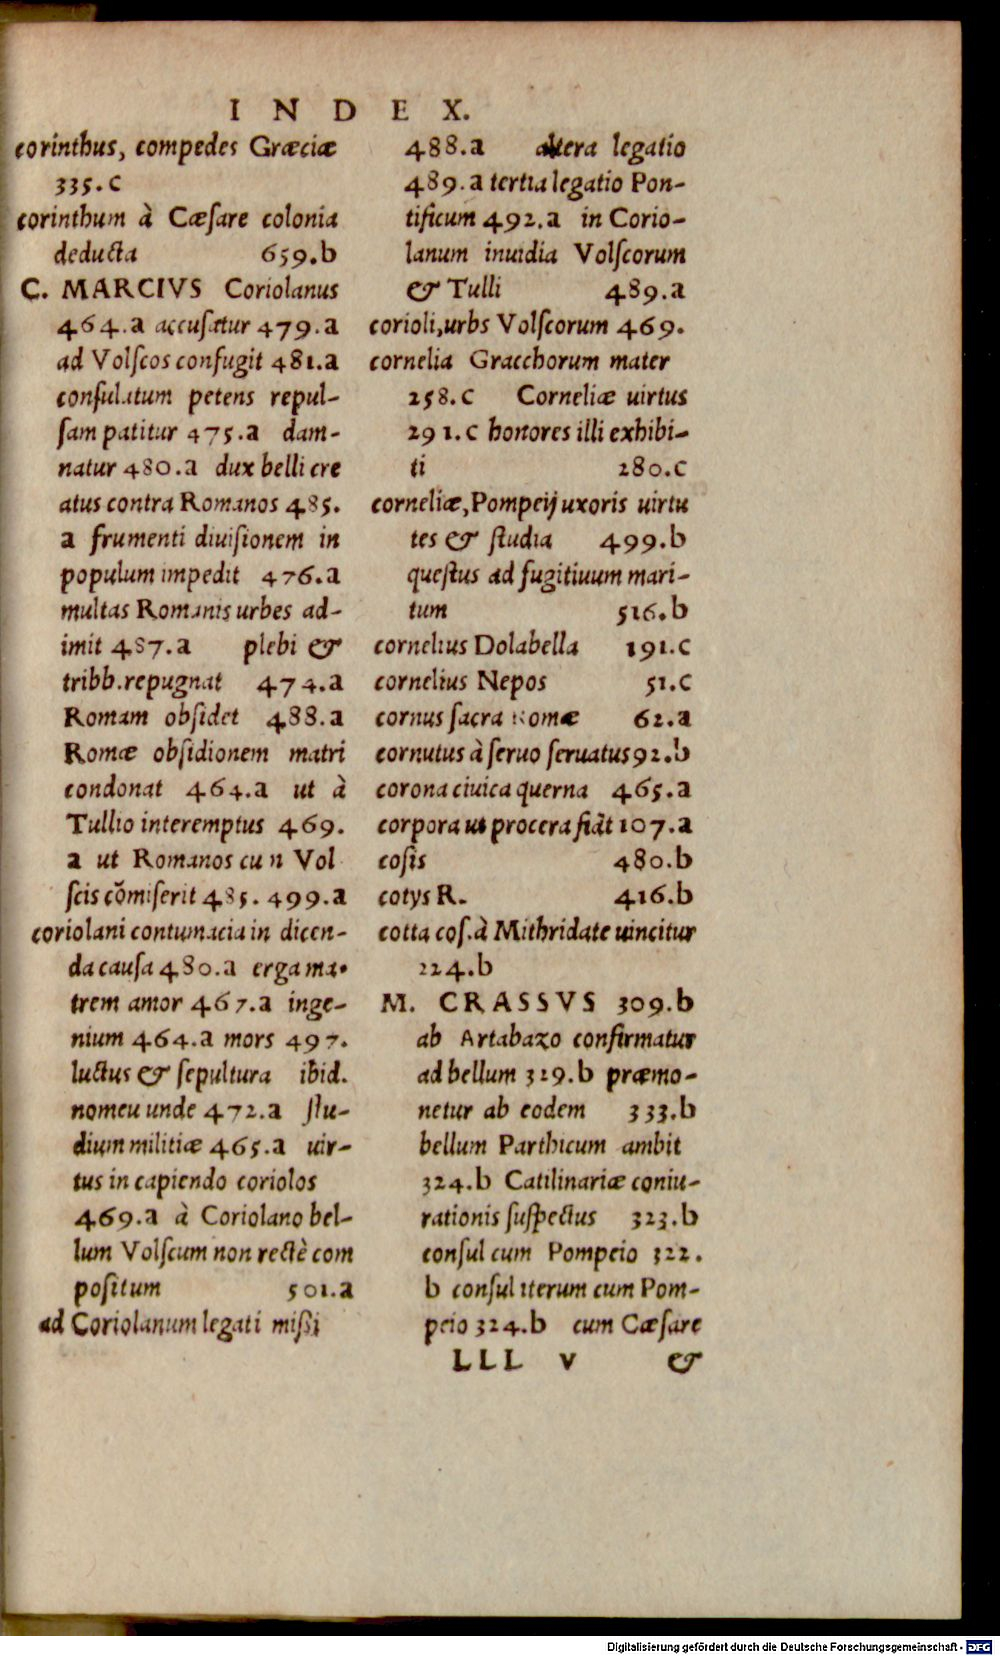 INDEX.
corinthus, compedes Græciæ
335.c
corinthum à Cæsare colonia
deducta 659.b
C. MARCIVS Coriolanus
464.a accusatur 479.a
ad Volscos confugit 481.a
consulatum petens repul-
sam patitur 475.a dam-
natur 480.a dux belli cre
atus contra Romanos 485.
a frumenti diuisionem in
populum impedit 476.a
multas Romanis urbes ad-
imit 487.a plebi &
tribb.repugnat 474.a
Romam obsidet 488.a
Romæ obsidionem matri
condonat 464.a ut à
Tullio interemptus 469.
a ut Romanos cum Vol
scis cõmiserit 485. 499.a
coriolani contumacia in dicen-
da causa 480.a erga ma-
trem amor 467.a inge-
nium 464.a mors 497.
luctus & sepultura ibid.
nomeu unde 472.a stu-
dium militiæ 465.a uir-
tus in capiendo coriolos
469.a à Coriolano bel-
lum Volscum non rectè com
positum 501.a
ad Coriolanum legati missi
488.a altera legatio
489.a tertia legatio Pon-
tificum 492.a in Corio-
lanum inuidia Volscorum
& Tulli 489.a
corioli, urbs Volscorum 469.
cornelia Gracchorum mater
258.c Corneliæ uirtus
291.c honores illi exhibi-
ti 280.c
corneliæ, Pompeij uxoris uirtu
tes & studia 499.b
questus ad fugitiuum mari-
tum 516.b
cornelius Dolabella 191.c
cornelius Nepos 51.c
cornus sacra Romæ 62.a
cornutus à seruo seruatus 92.b
corona ciuica querna 465.a
corpora ut procera fiãt 107.a
cosis 480.b
cotys R. 416.b
cotta cos.à Mithridate uincitur
224.b
M. CRASSVS 309.b
ab Artabazo confirmatur
ad bellum 329.b præmo-
netur ab eodem 333.b
bellum Parthicum ambit
324.b Catilinariæ coniu-
rationis suspectus 323.b
consul cum Pompeio 322.
b consul iterum cum Pom-
peio 324.b cum Cæsare
LLL v &
Digitalisierung gefördert durch die Deutsche Forschungsgemeinschaft - DFG